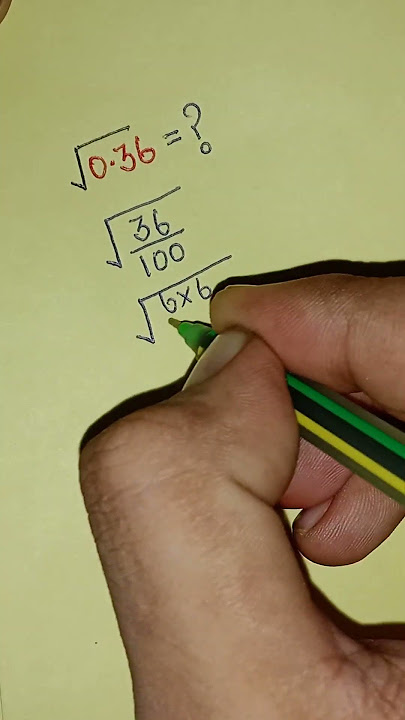 √0.36 = ?
√36/100
√6×6